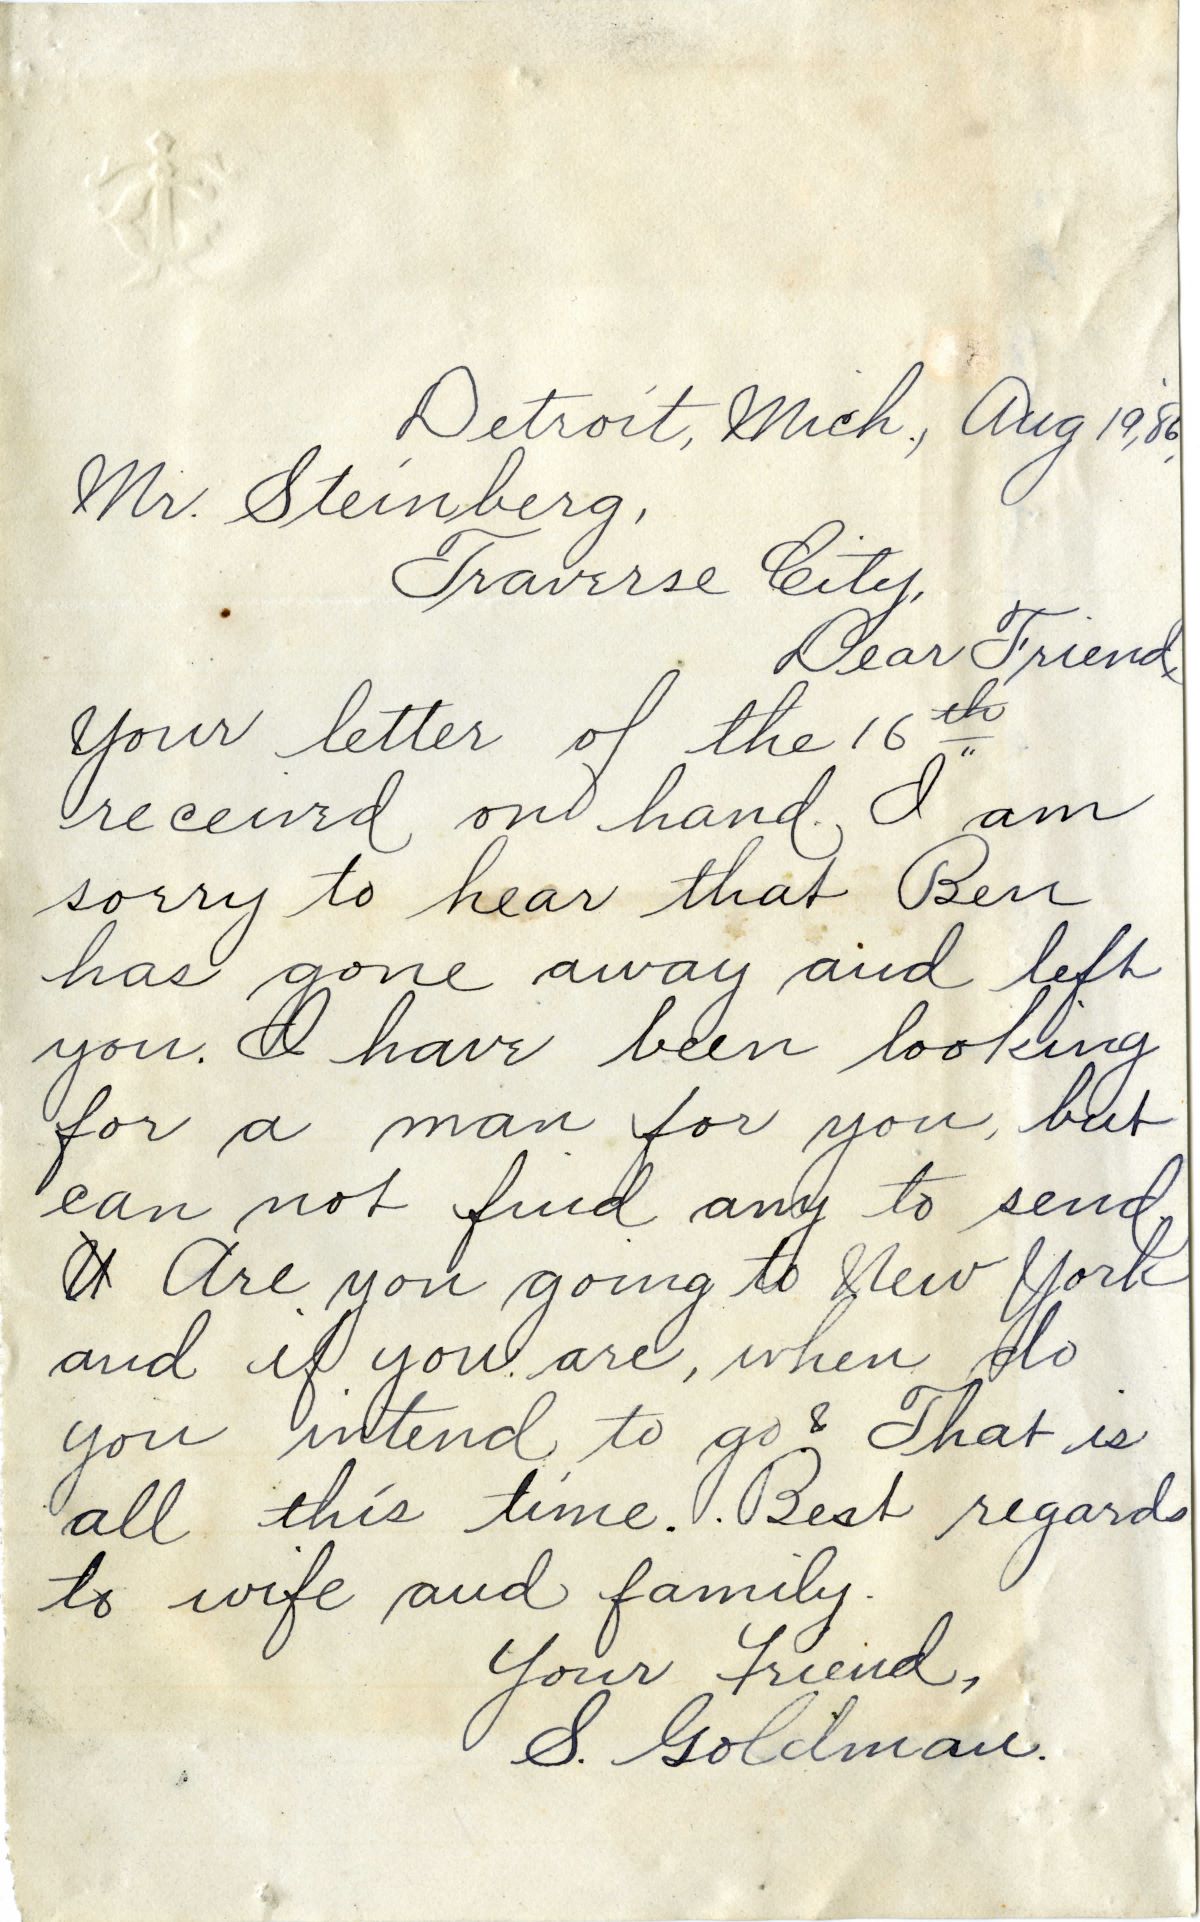 Detroit, Mich., Aug 19, '86,
Mr. Steinberg,
Traverse City,
Dear Friend,
Your letter of the 16th
received on hand. I am
sorry to hear that Ben
has gone away and left
you. I have been looking
for a man for you, but
can not find any to send.
Are you going to New York
and if you are, when do
you intend to go? That is
all this time. Best regards
to wife and family.
Your Friend,
S. Goldman.